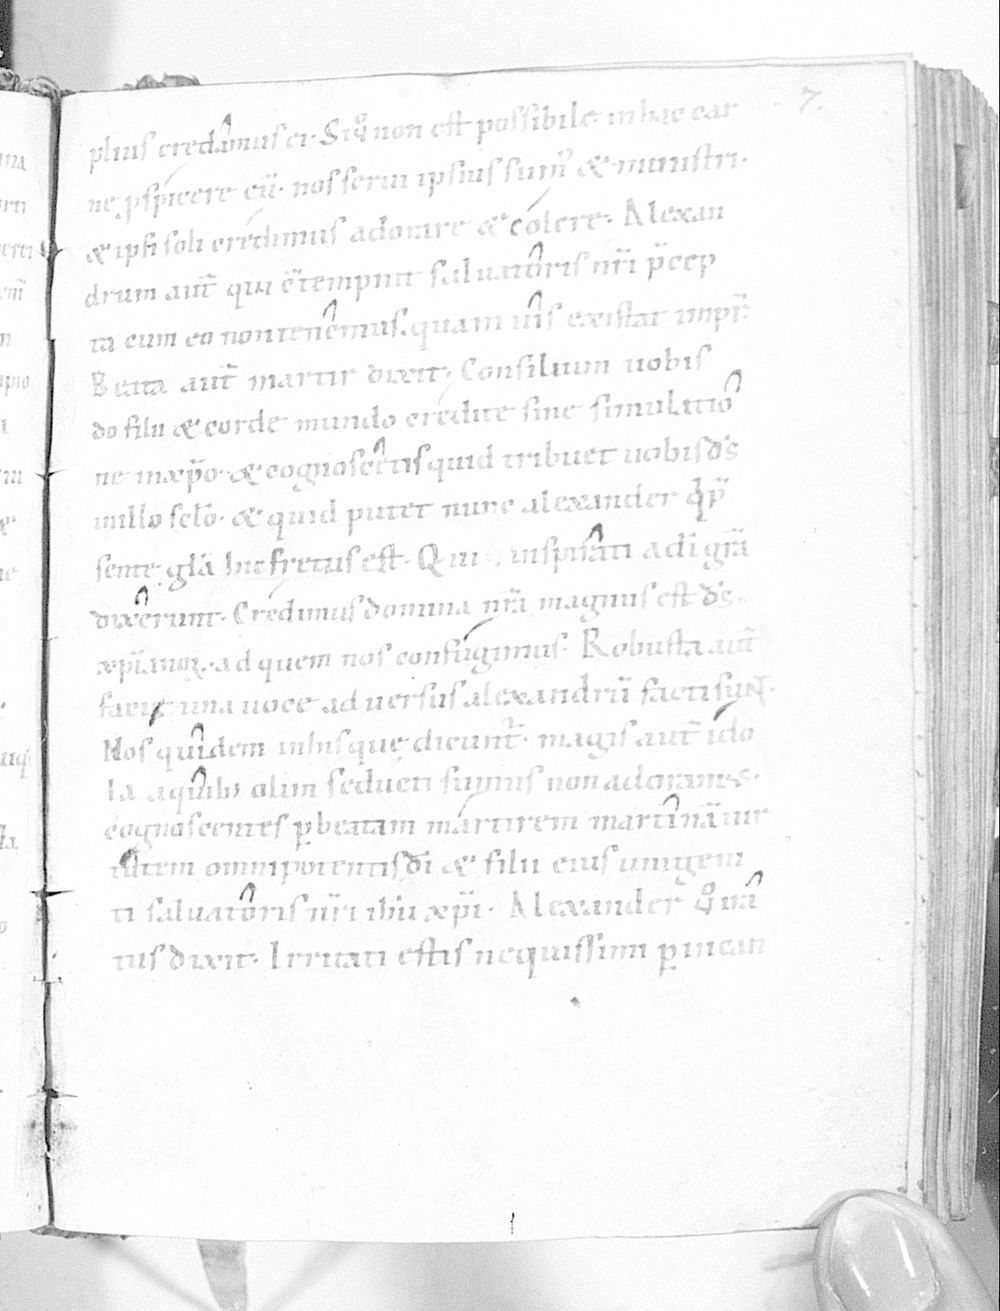 7.
plius credamus ei. Siq̊ non est possibile in hac car
ne ꝓspicere eū. nos serui ipsius sum᷒ & ministri.
& ipsi soli credimus adorare & colere. Alexan
drum aut̄ qui c̄tempnit saluatoris nr̄i p̄cep
ta cum eo non tenemus. quam uis existat imp̄r
Beata aut̄ martir dixit. Consilium uobis
do filii & corde mundo credite sine simulatio
ne in xp̄o. & cognoscetis quid tribuet uobis ds̄
in illo sclo᷒. & quid putet nunc alexander q̄ p̄
sente gl̄a hic fretus est. Qui inspirati a di gr̄a
dixerunt. Credimus domina nr̄a magnus est ds̄
xp̄ianoꝝ. ad quem nos confugimus. Robusta aut̄
facie una uoce aduersus alexandrū facti sunt.
Nos quidem in his que dicunt᷑. magis aut̄ ido
la a quibꝫ olim seducti sumus non adoramus.
cognoscentes ꝑ beatam martirem martinā uir
tutem omnipotentis di & filii eius unigeni
ti saluatoris nr̄i ihū xp̄i. Alexander q̊ ira
tus dixit. Irritati estis nequissimi ꝑ incan